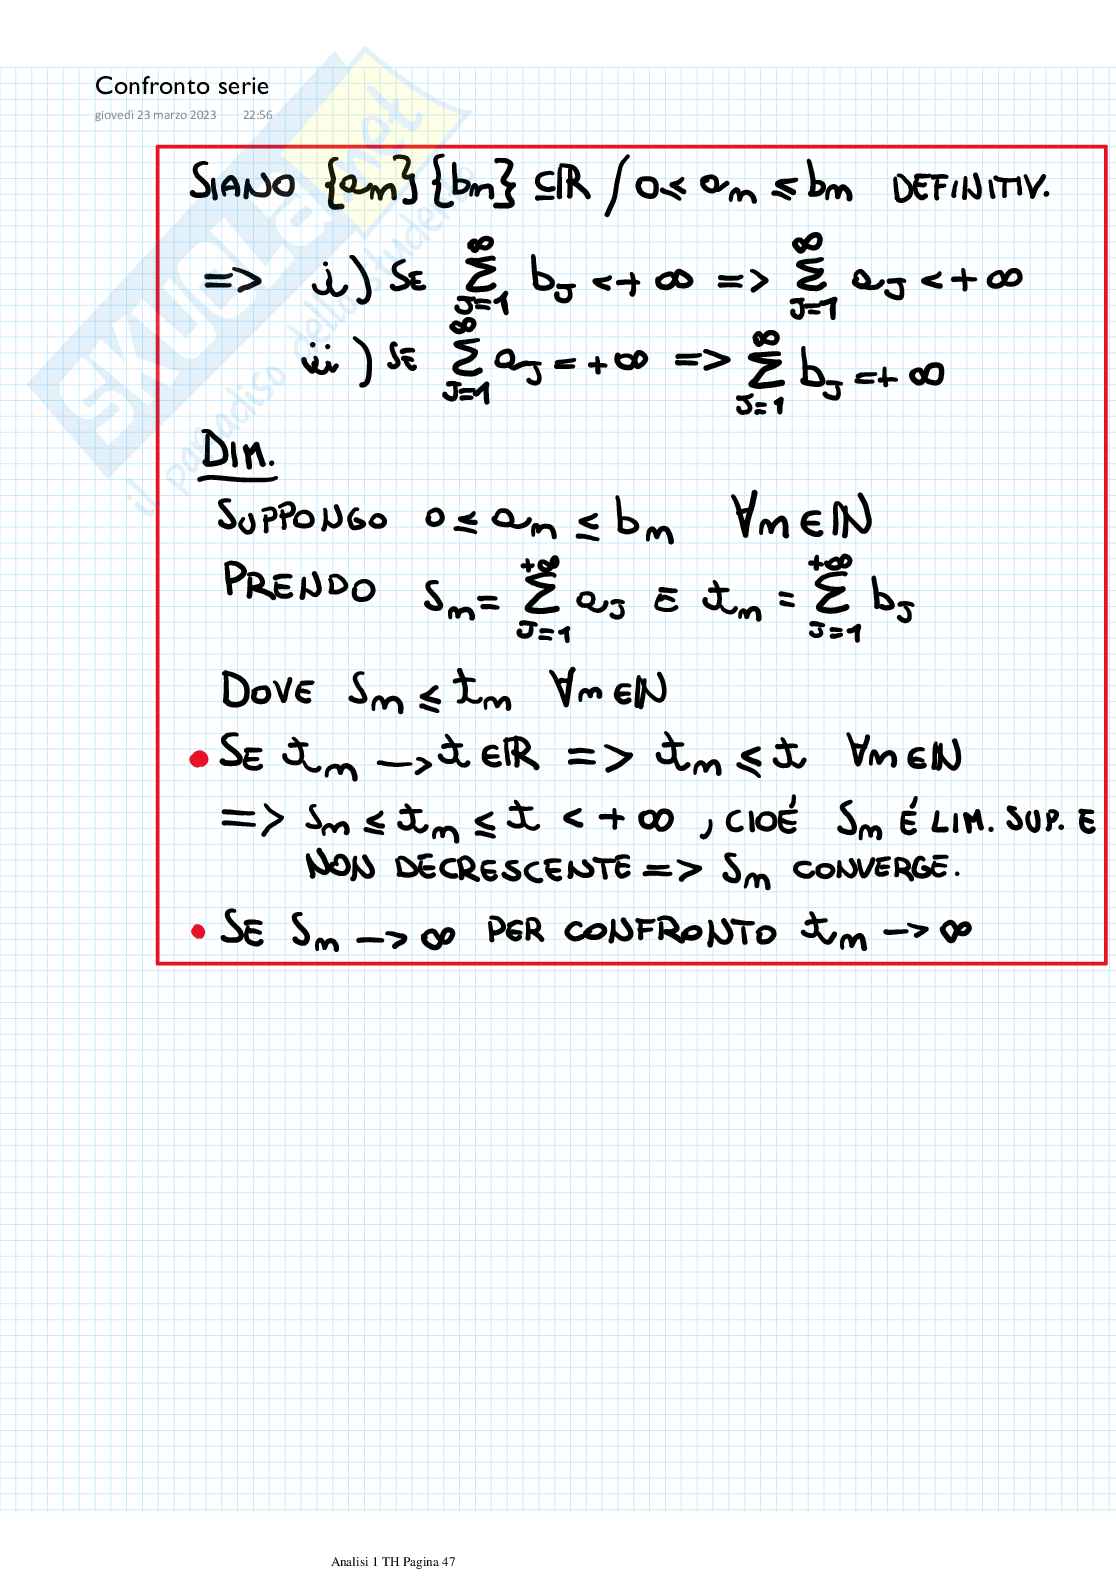 Confronto serie
giovedì 23 marzo 2023 22:56
SIANO {am} {bm} ⊆ IR / 0< am ≤ bm DEFINITIV.
=> i) SE ∞ Σ J=1 bJ <+∞ => ∞ Σ J=1 aJ <+∞
ii) SE ∞ Σ J=1 aJ =+∞ => ∞ Σ J=1 bJ =+∞
DIM.
SUPPONGO 0 ≤ am ≤ bm ∀m∈IN
PRENDO Sm = +∞ Σ J=1 aJ E tm = +∞ Σ J=1 bJ
DOVE Sm ≤ tm ∀m∈IN
• SE tm —> t ∈IR => tm ≤ t ∀m∈IN
=> Sm ≤ tm ≤ t < +∞, CIOÉ Sm É LIM. SUP. E
NON DECRESCENTE => Sm CONVERGE.
• SE Sm —> ∞ PER CONFRONTO tm —> ∞
SKUOLA.net
il paradiso dello studente
Analisi 1 TH Pagina 47